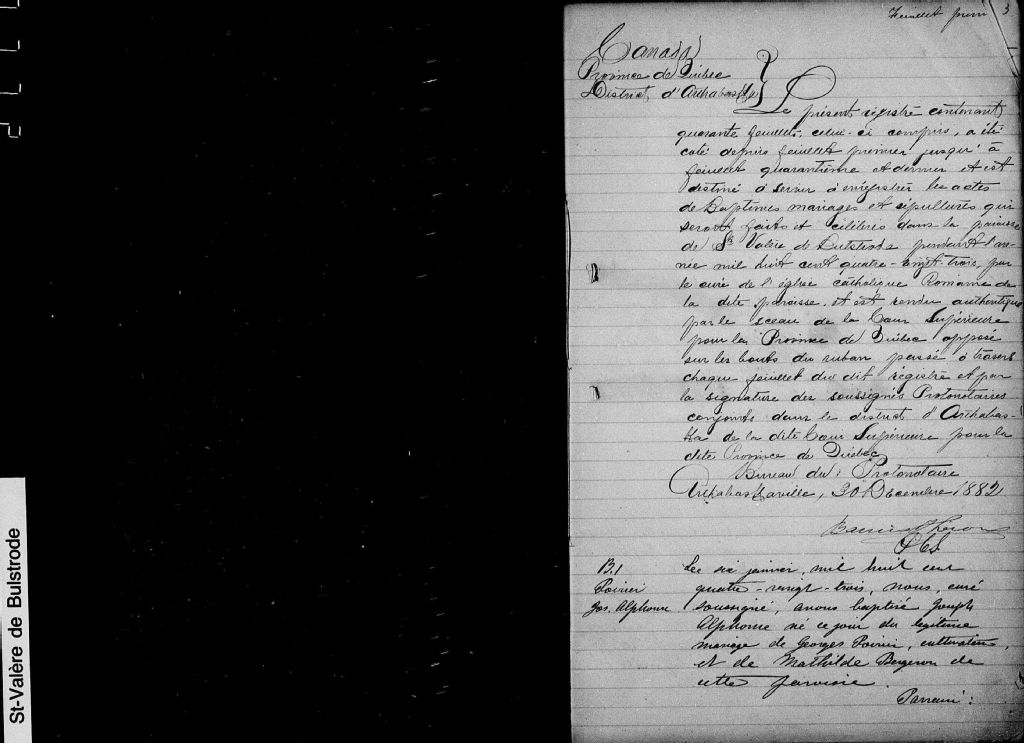 St-Valère de Bulstrode
Feuillet premi 3
Canada
Province de Québec
District d'Arthabaska
Le présent régistre contenant
quarante feuillets, celui-ci compris, a été
coté depuis feuillet premier jusqu'à
feuillet quarantième et dernier et est
destiné à servir à enrégistrer les actes
de Baptêmes mariages et sépultures qui
seront faits et célébrés dans la paroisse
de St Valère de Bulstrode pendant l'an-
née mil huit cent quatre-vingt-trois, par
le curé de l'église catholique Romaine de
la dite paroisse. et est rendu authentique
par le sceau de la Cour Supérieure
pour la Province de Québec apposé
sur les bouts du ruban passé à travers
chaque feuillet du dit régistre et par
la signature des soussignés Protonotaires
conjoints dans le district d'Arthabas-
ka de la dite Cour Supérieure pour la
dite Province de Québec
Bureau du Protonotaire
Arthabaskaville, 30 Décembre 1882
P.C.S.
B.1
Poirier
Jos. Alphonse
Le six janvier, mil huit cent
quatre-vingt-trois, nous, curé
soussigné, avons baptisé Joseph
Alphonse né ce jour du légitime
mariage de Georges Poirier, cultivateur,
et de Mathilde Bergeron de
cette paroisse.
Parrain :